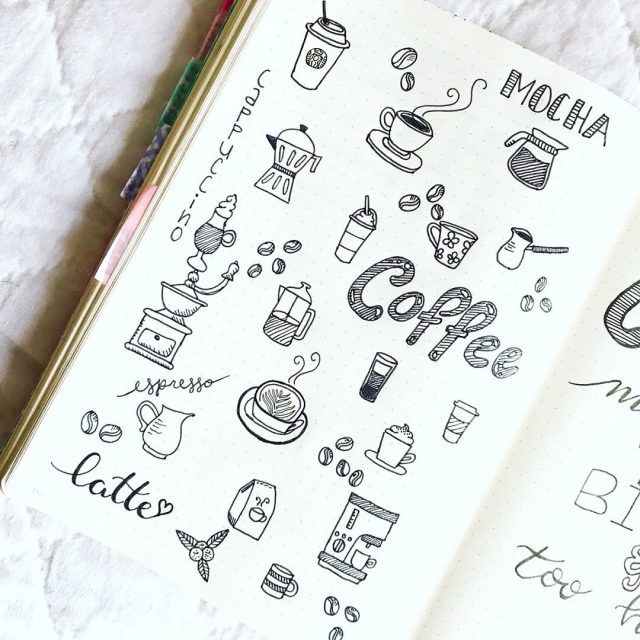 MOCHA
CAPPUCCINO
Coffee
espresso
latte
too